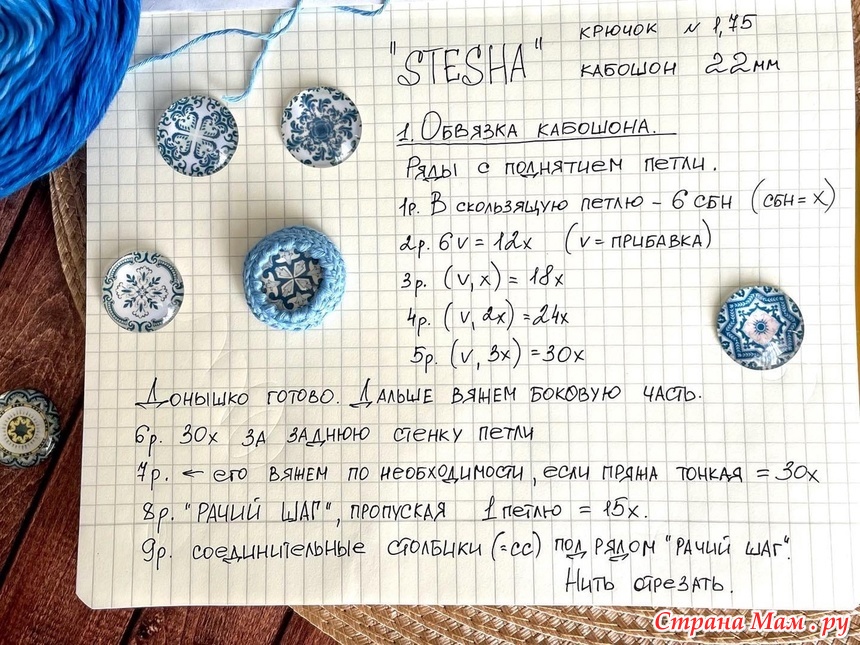 "STESHA"
КРЮЧОК № 1,75
КАБОШОН 22мм
1. ОБВЯЗКА КАБОШОНА.
РЯДЫ С ПОДНЯТИЕМ ПЕТЛИ.
1р. В СКОЛЬЗЯЩУЮ ПЕТЛЮ – 6 СБН (СБН = X)
2р. 6V = 12X (V = ПРИБАВКА)
3р. (V, X) = 18X
4р. (V, 2X) = 24X
5р. (V, 3X) = 30X
ДОНЫШКО ГОТОВО. ДАЛЬШЕ ВЯЖЕМ БОКОВУЮ ЧАСТЬ.
6р. 30X ЗА ЗАДНЮЮ СТЕНКУ ПЕТЛИ
7р. ← ЕГО ВЯЖЕМ ПО НЕОБХОДИМОСТИ, ЕСЛИ ПРЯЖА ТОНКАЯ = 30X
8р. "РАЧИЙ ШАГ", ПРОПУСКАЯ 1 ПЕТЛЮ = 15X.
9р. СОЕДИНИТЕЛЬНЫЕ СТОЛБИКИ (=СС) ПОД РЯДОМ "РАЧИЙ ШАГ".
НИТЬ ОТРЕЗАТЬ.
Страна Мам.ру